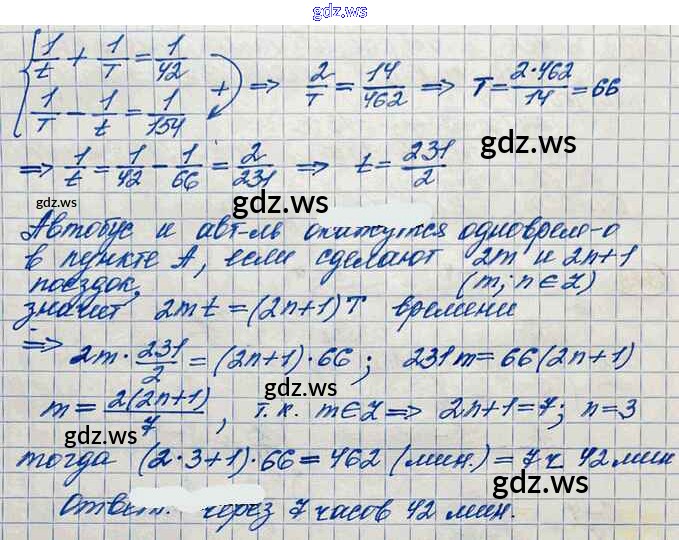 gdz.ws
{ 1/t + 1/T = 1/42
1/T − 1/t = 1/154 + ⇒ 2/T = 14/462 ⇒ T = 2·462/14 = 66
gdz.ws
⇒ 1/t = 1/42 − 1/66 = 2/231 ⇒ t = 231/2
gdz.ws
gdz.ws
Автобус и авт-ль окажутся одноврем-о
в пункте А, если сделают 2m и 2n+1
поездок, (m; n ∈ Z)
значит 2mt = (2n+1)T времени
gdz.ws
⇒ 2m · 231/2 = (2n+1)·66; 231m = 66(2n+1)
gdz.ws
m = 2(2n+1)/7, т.к. m ∈ Z ⇒ 2n+1 = 7; n = 3
gdz.ws
тогда (2·3+1)·66 = 462 (мин.) = 7 ч 42 мин
gdz.ws
Ответ: через 7 часов 42 мин.
gdz.ws